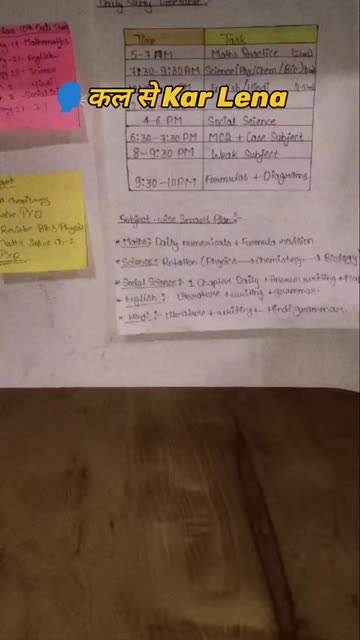 Daily Study Timetable
Time Task
5-7 AM Maths Practice
7:30-9:30 AM Science (Phy/Chem/Bio)
🗣️ कल से Kar Lena
4-6 PM Social Science
6:30-7:30 PM MCQ + Case Subject
8-9:30 PM Weak Subject
9:30-10 PM Formulas + Diagrams
Subject-wise Smart Plan:-
Maths: Daily numericals + Formula revision
Science: Rotation (Physics → Chemistry → Biology
Social Science: 1 Chapter Daily + Answer writing + Map
English: Literature + writing + grammar
Hindi: Literature + writing + Hindi grammar
Mathematics
English
Science
Hindi
Chemistry
PYQ
Revise Physics
Maths Solve Ch-2
PYQ